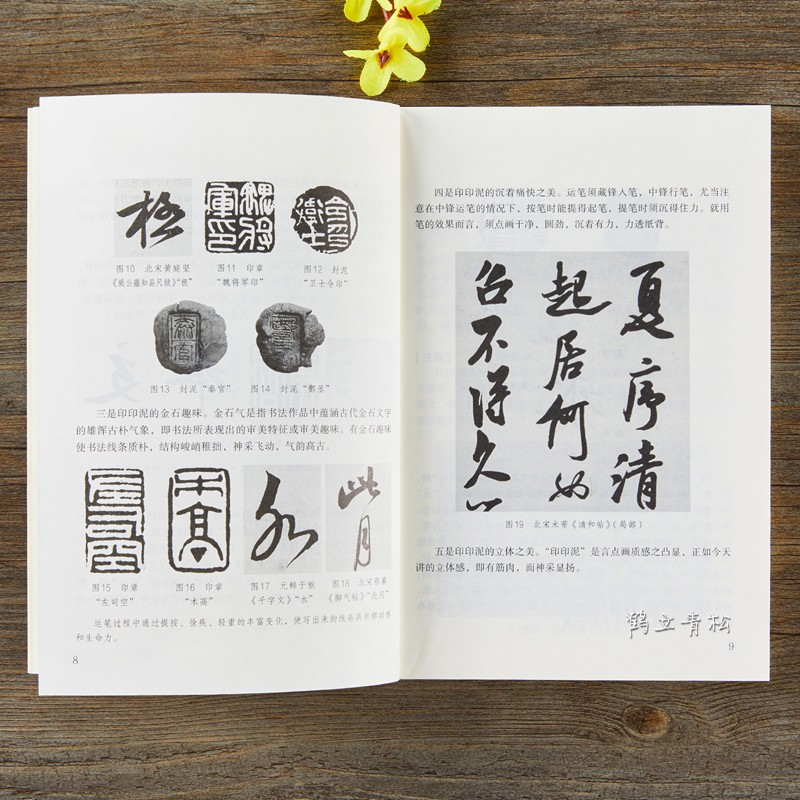 極
图10 北宋黄庭坚
《致公蕴知县尺牍》“極”
图11 印章
“魏将军印”
图12 封泥
“卫士令印”
图13 封泥“秦宫”
图14 封泥“酆丞”
三是印印泥的金石趣味。金石气是指书法作品中蕴涵古代金石文字
的雄浑古朴气象，即书法所表现出的审美特征或审美趣味。有金石趣味
使书法线条质朴，结构峻峭稚拙，神采飞动，气韵高古。
永
此月
图15 印章
“左司空”
图16 印章
“木高”
图17 元鲜于枢
《千字文》“水”
图18 北宋蔡襄
《脚气帖》“此月”
运笔过程中通过提按、徐疾、轻重的丰富变化，使写出来的线条具有律动感
和生命力。
8
四是印印泥的沉着痛快之美。运笔须藏锋入笔，中锋行笔，尤当注
意在中锋运笔的情况下，按笔时能提得起笔，提笔时须沉得住力。就用
笔的效果而言，须点画干净，圆劲，沉着有力，力透纸背。
夏序清
起居何如
不得久
图19 北宋米芾《清和帖》（局部）
五是印印泥的立体之美。“印印泥”是言点画质感之凸显，正如今天
讲的立体感，即有筋肉，而神采显扬。
鹤立青松
9